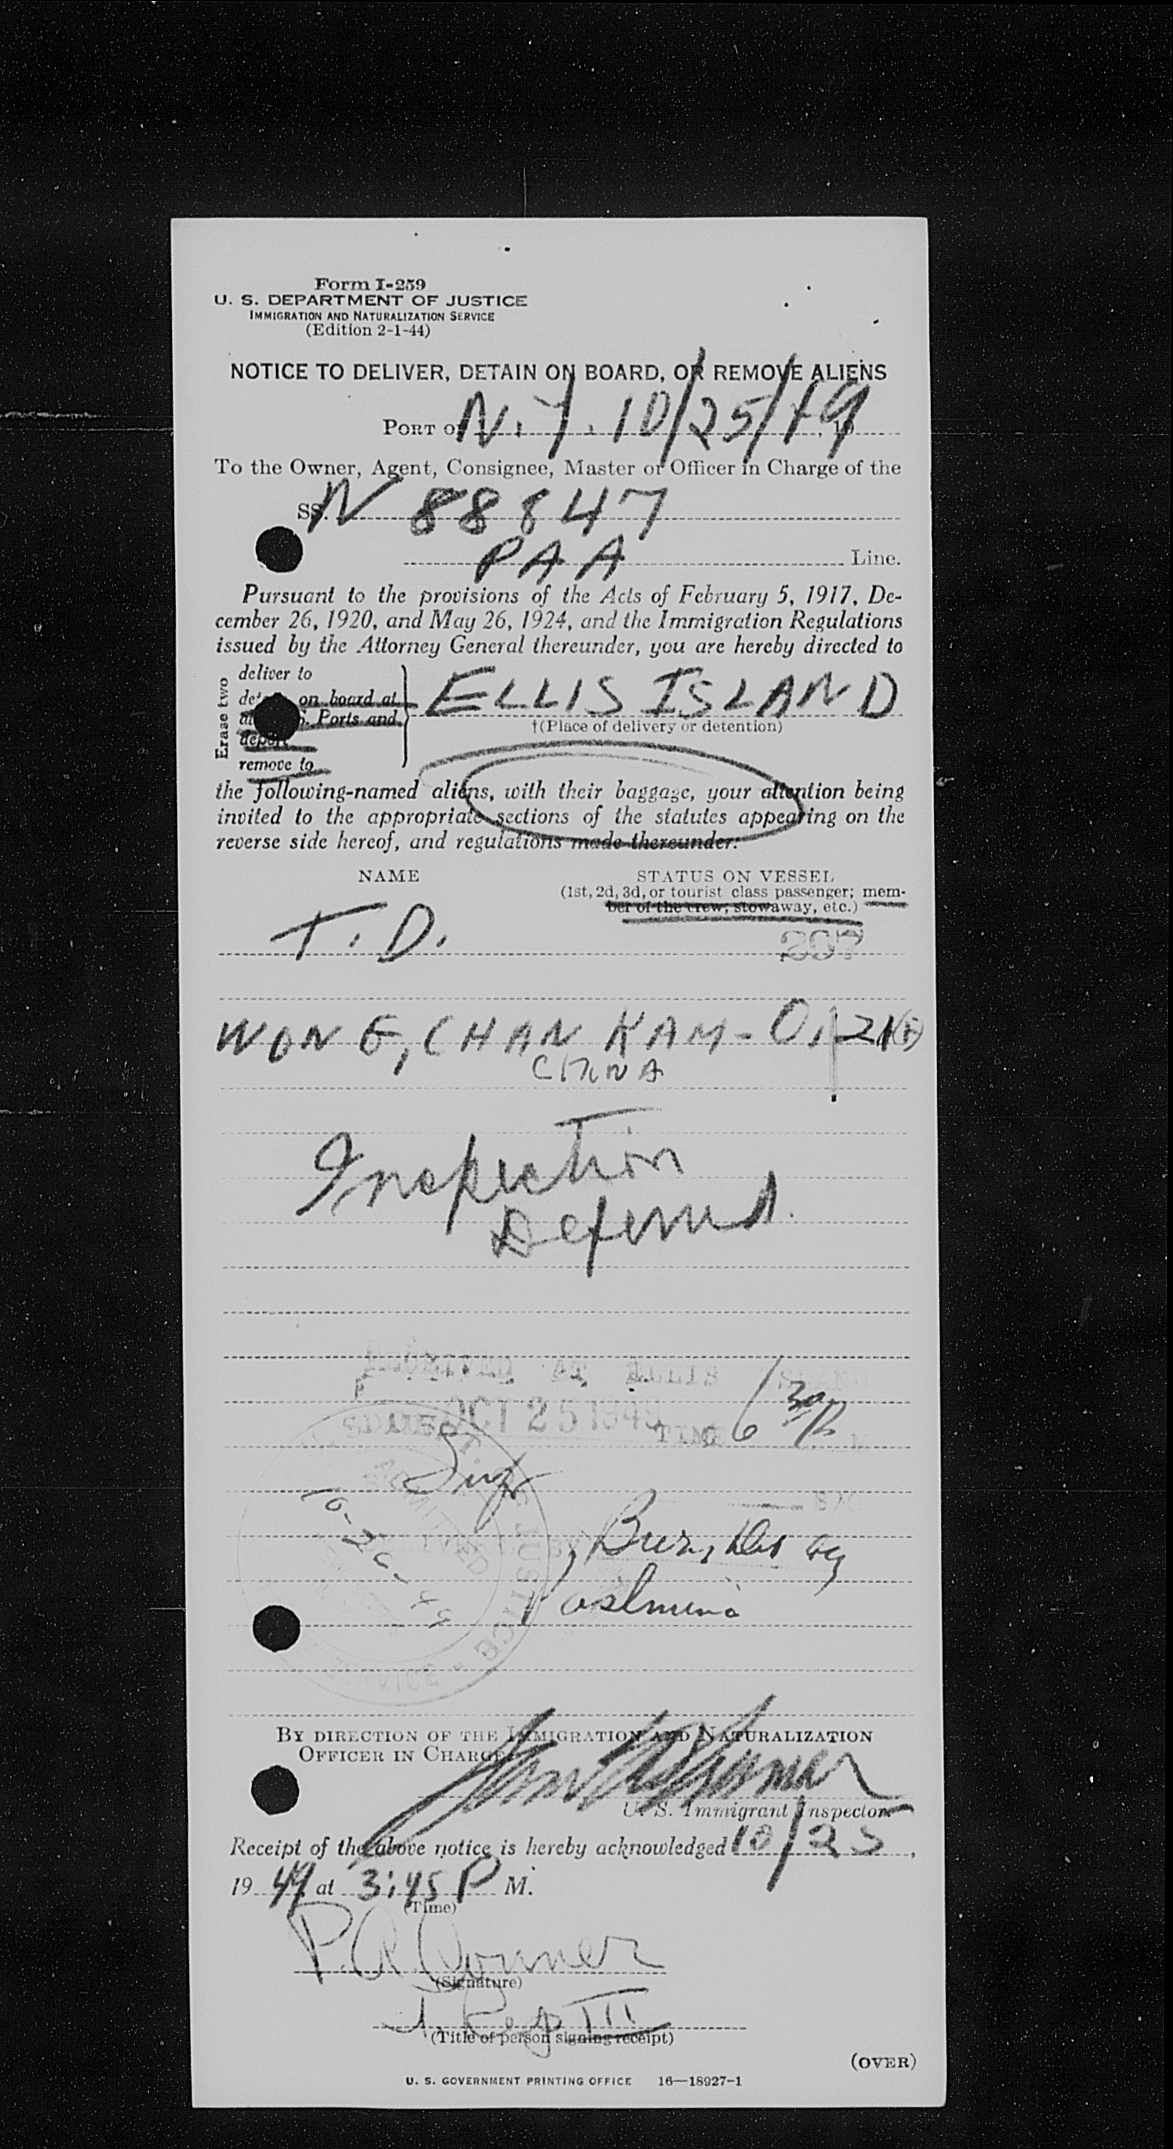 Form I-259
U. S. DEPARTMENT OF JUSTICE
IMMIGRATION AND NATURALIZATION SERVICE
(Edition 2-1-44)
NOTICE TO DELIVER, DETAIN ON BOARD, OR REMOVE ALIENS
PORT OF N.Y. 10/25/49, 19
To the Owner, Agent, Consignee, Master or Officer in Charge of the
SS. N 88847
PAA Line.
Pursuant to the provisions of the Acts of February 5, 1917, De-
cember 26, 1920, and May 26, 1924, and the Immigration Regulations
issued by the Attorney General thereunder, you are hereby directed to
Erase two
deliver to
on board at
S. Ports and
deport
remove to
ELLIS ISLAND
†(Place of delivery or detention)
the following-named aliens, with their baggage, your attention being
invited to the appropriate sections of the statutes appearing on the
reverse side hereof, and regulations made thereunder:
NAME
STATUS ON VESSEL
(1st, 2d, 3d, or tourist class passenger; mem-
ber of the crew; stowaway, etc.)
T. D.
207
WONG, CHAN KAM - O, 21(F)
CHINA
Inspection
Deferred.
AT ELLIS
DATE OCT 25 1949 TIME 6 30 P
10-26-49
BY DIRECTION OF THE IMMIGRATION AND NATURALIZATION
OFFICER IN CHARGE
U. S. Immigrant Inspector
Receipt of the above notice is hereby acknowledged 10/25,
19 49 at 3:45 P M.
(Time)
(Signature)
(Title of person signing receipt)
(OVER)
U. S. GOVERNMENT PRINTING OFFICE 16—18927-1